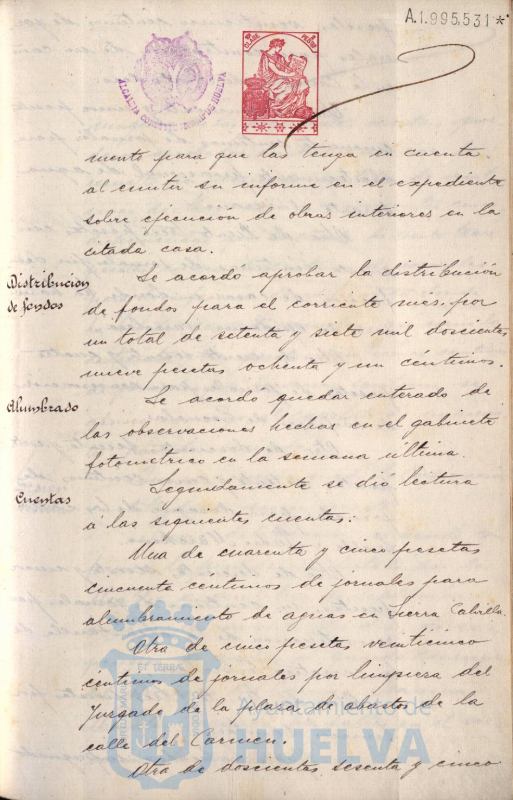 A.1.995.531*
CLASE
ALCALDIA CONSTITUCIONAL DE HUELVA
miento para que las tenga en cuenta
al emitir su informe en el expediente
sobre ejecución de obras interiores en la
citada casa.
Distribución
de fondos
Se acordó aprobar la distribución
de fondos para el corriente mes, por
un total de setenta y siete mil doscientas
nueve pesetas ochenta y un céntimos.
Alumbrado
Se acordo quedar enterado de
las observaciones hechas en el gabinete
fotométrico en la semana última.
Cuentas
Seguidamente se dió lectura
á las siguientes cuentas:
Una de cuarenta y cinco pesetas
cincuenta céntimos de jornales para
alumbramiento de aguas en Sierra
Otra de cinco pesetas veinticinco
centimos de jornales por limpieza del
Juzgado de la plaza de abastos de la
calle del Carmen.
Otra de doscientas sesenta y cinco
Ayuntamiento de
HUELVA